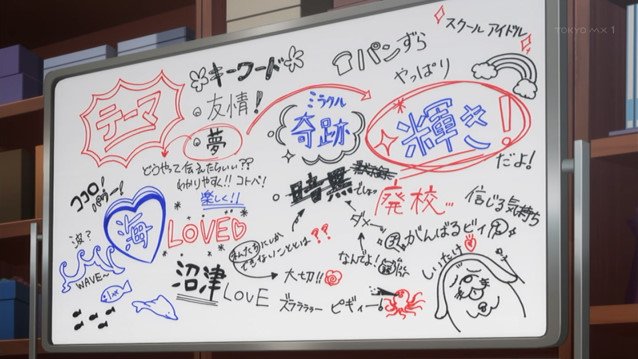 TOKYO MX 1
スクールアイドル
キーワード
パンずら
やっぱり
テーマ
友情!
ミラクル
奇跡
輝き!
夢
だよ!
どうやって伝えたらいい??
わかりやすく!!コトバ!
楽しく!!
暗黒
でしょ
廃校...
信じる気持ち
ココロ!
海
LOVE
ダメー
がんばるビィ
波?
WAVE~
??
なんでよ!
しいたけ
大切!!
沼津
LOVE
ズラララララー
ピギィー!